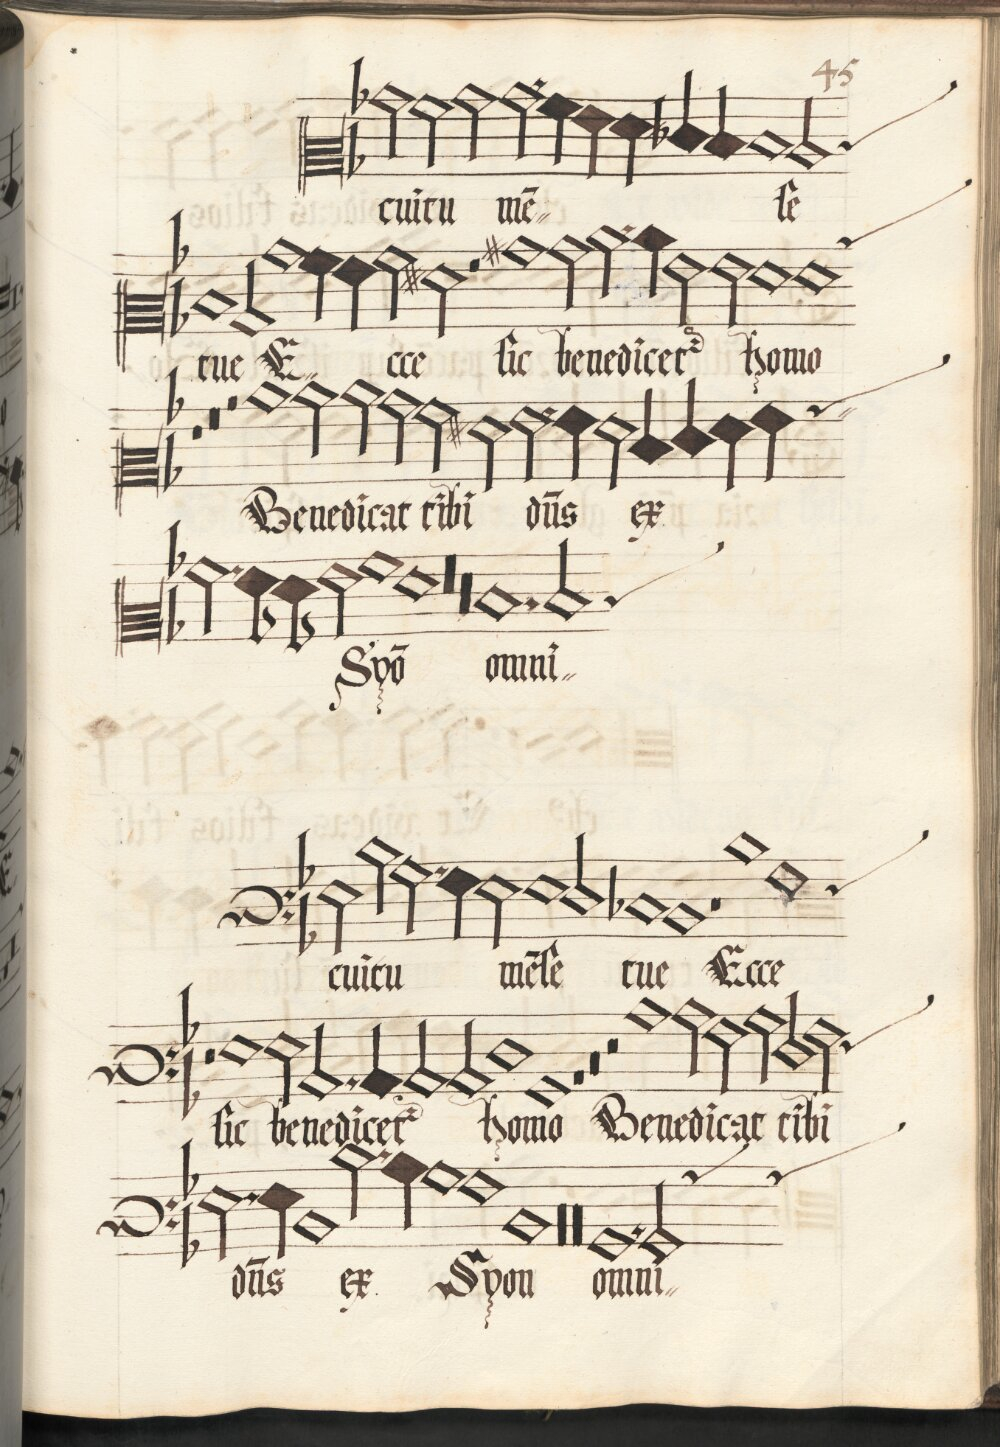 45
cuitu mē〃 se
tue E〃 cce sic benedicet᷑ homo
Benedicat tibi dn̄s ex
Syō omni〃
cuitu mēse tue Ecce
sic benedicet᷑ homo Benedicat tibi
dn̄s ex Syon omni〃